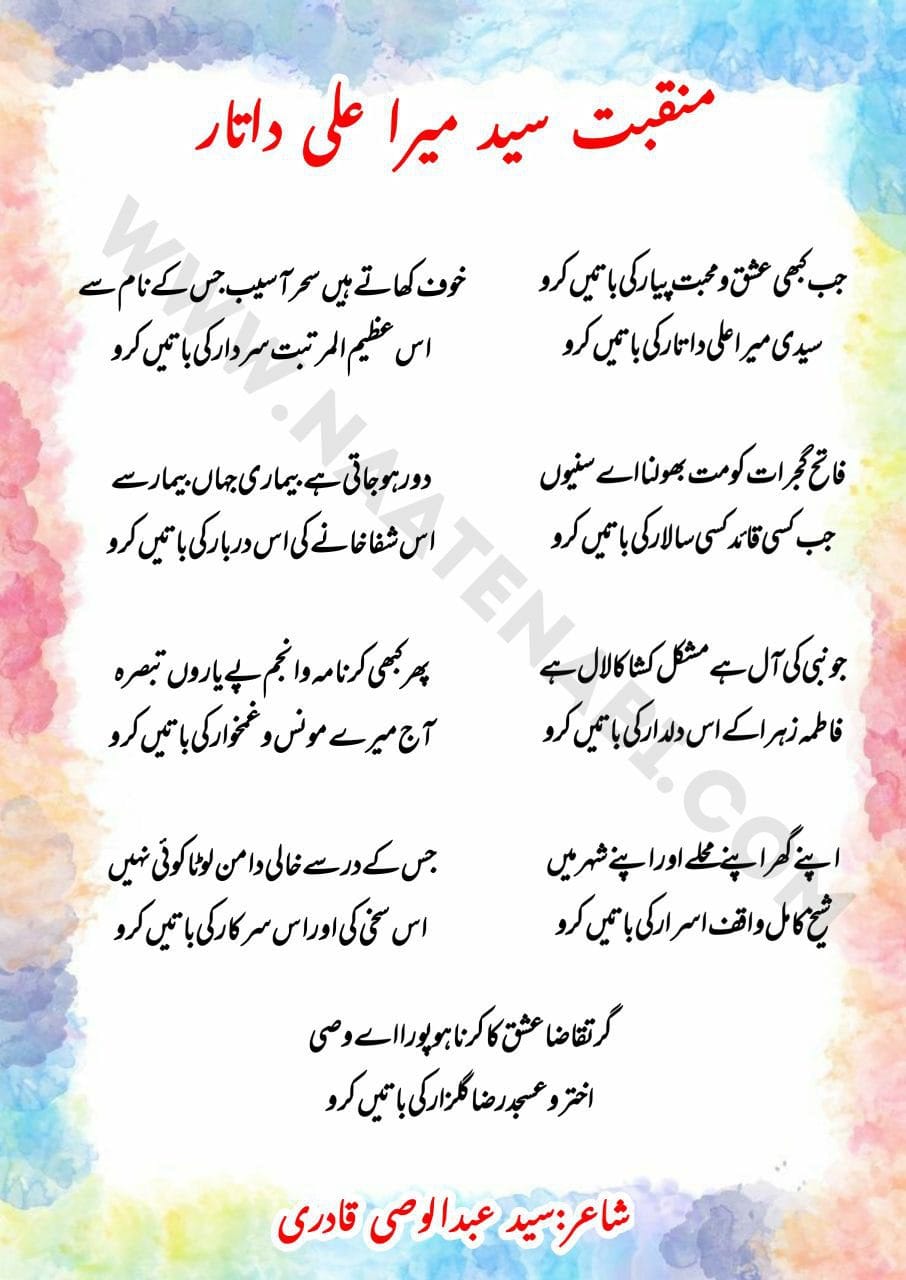 منقبت سید میرا علی داتار
جب کبھی عشق و محبت پیار کی باتیں کرو
سیدی میرا علی داتار کی باتیں کرو
خوف کھاتے ہیں سحر آسیب جس کے نام سے
اس عظیم المرتبت سردار کی باتیں کرو
فاتح گجرات کو مت بھولنا اے سنیوں
جب کسی قائد کسی سالار کی باتیں کرو
دور ہو جاتی ہے بیماری جہاں بیمار سے
اس شفا خانے کی اس دربار کی باتیں کرو
جو نبی کی آل ہے مشکل کشا کا لال ہے
فاطمہ زہرا کے اس دلدار کی باتیں کرو
پھر کبھی کرنا مہ و انجم پے یاروں تبصرہ
آج میرے مونس و غمخوار کی باتیں کرو
اپنے گھر اپنے محلے اور اپنے شہر میں
شیخ کامل واقف اسرار کی باتیں کرو
جس کے در سے خالی دامن لوٹا کوئی نہیں
اس سخی کی اور اس سرکار کی باتیں کرو
گر تقاضا عشق کا کرنا ہو پورا اے وصی
اختر و عسجد رضا گلزار کی باتیں کرو
شاعر:سید عبدالوصی قادری
WWW.NAATENABI.COM